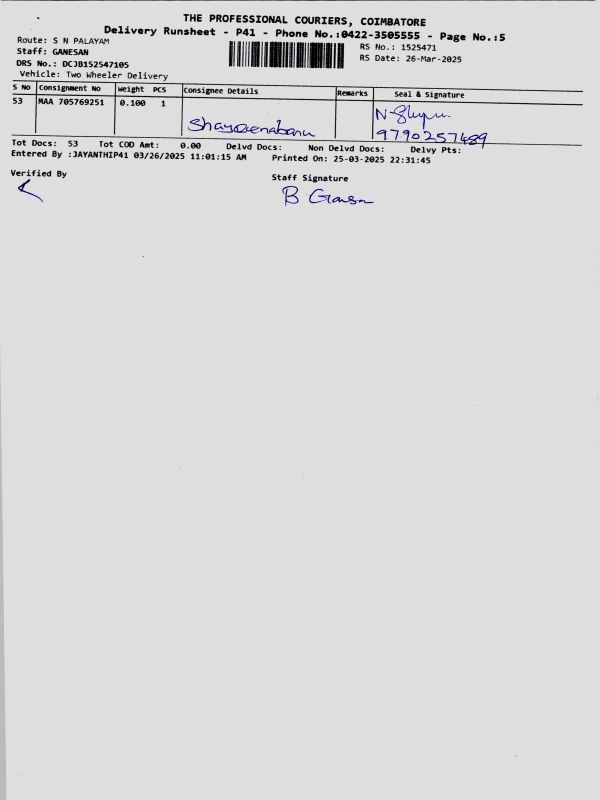 THE PROFESSIONAL COURIERS, COIMBATORE
Delivery Runsheet - P41 - Phone No.:0422-3505555 - Page No.:5
Route: S N PALAYAM
RS No.: 1525471
Staff: GANESAN
RS Date: 26-Mar-2025
DRS No.: DCJB152547105
Vehicle: Two Wheeler Delivery
S No Consignment No Weight PCS Consignee Details Remarks Seal & Signature
53 MAA 705769251 0.100 1
Shayeenabanu
9790257489
Tot Docs: 53 Tot COD Amt: 0.00 Delvd Docs: Non Delvd Docs: Delvy Pts:
Entered By :JAYANTHIP41 03/26/2025 11:01:15 AM Printed On: 25-03-2025 22:31:45
Verified By
Staff Signature